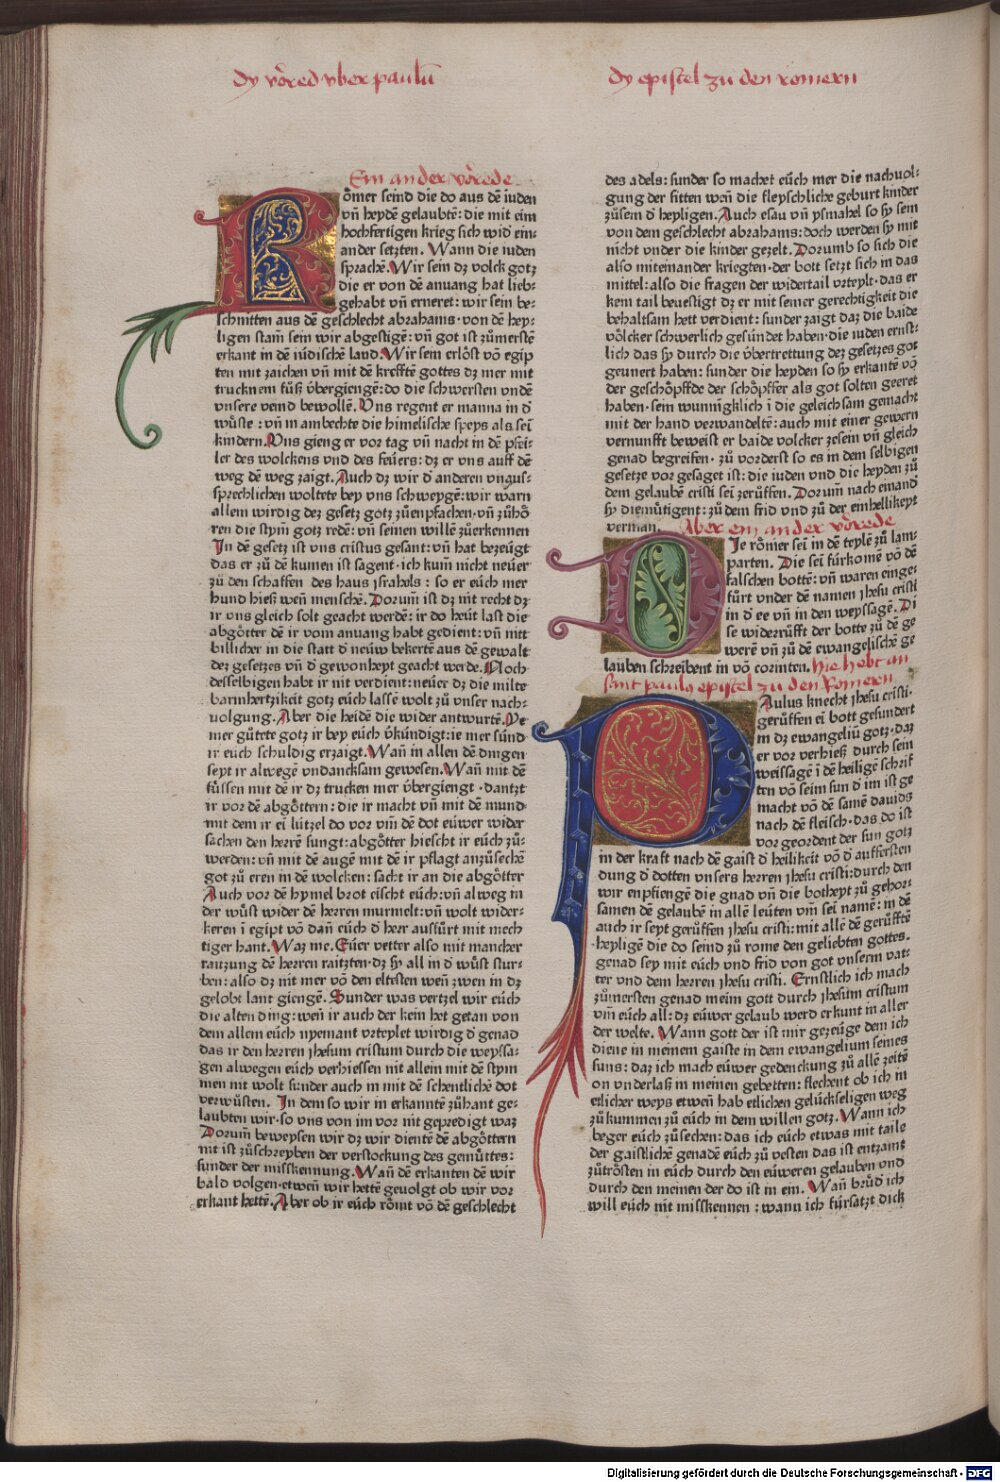 dy vored vber paulū
dy epistel zu den romern
Ein ander vorede
Römer seind die do aus dē iuden
vñ heydē gelaubtē: die mit eim
hochfertigen krieg sich wid͛ ein-
ander setzten. Wann die iuden
sprachē. Wir sein dz volck gotz
die er von dē anuang hat lieb-
gehabt vñ erneret: wir sein be-
schnitten aus dē geschlecht abrahams · von dē hey-
ligen stam̄ sein wir abgestigē: vñ got ist zůmerstē
erkant in dē iüdischē land. Wir sein erlöst vō egip
ten mit zaichen vñ mit dē krefftē gottes dz mer mit
trucknem fůß übergiengē: do die schwersten vndē
vnsere veind bewollē. Vns regent er manna in d͛
wůste: vñ in ambechte die himelische speys als sei͂
kindern. Vns gieng er vor tag vñ nacht in dē pfei-
ler des wolckens vnd des feüers: dz er vns auff dē
weg dē weg zaigt. Auch dz wir d͛ anderen vnaus-
sprechlichen woltete bey vns schweygē: wir warn
allein wirdig dez gesetz gotz zůenpfachen · vñ zůhö
ren die stym̄ gotz redē: vñ seinen willē zůerkennen
In dē gesetz ist vns cristus gesant: vñ hat bezeügt
das er zů dē kumen ist sagent · ich kum̄ nicht neüer
zů den schaffen des haus israhels: so er eüch mer
hund hieß weñ menschē. Dorum̄ ist dz nit recht dz
ir vns gleich solt geacht werdē: ir do heüt last die
abgötter dē ir vom anuang habt gedient: vñ nitt
billicher in die statt d͛ neüw bekertē aus dē gewalt
dez gesetzes vñ d͛ gewonheyt geacht werde. Noch
desselbigen habt ir nit verdient: neüer dz die milte
barmhertzikeit gotz eüch lassē wolt zů vnser nach-
uolgung. Aber die heidē die wider antwurtē. Ye
mer gůtete gotz ir bey euch v͛kündigt: ie mer sünd
ir eüch schuldig erzaigt. Wañ in allen dē dingen
seyt ir alwegē vndancksam gewesen. Wañ mit dē
füssen mit dē ir dz trucken mer übergiengt · dantzt
ir vor dē abgöttern: die ir macht vñ mit dē mund
mit dem ir ei͂ lützel do vor vm̄ dē dot eüwer wider
sachen den herrē sungt: abgötter hiescht ir eüch zů-
werden: vñ mit dē augē mit dē ir pflagt anzůsechē
got zů eren in dē wolcken: sacht ir an die abgötter
Auch vor dē hymel brot eischt eüch: vñ alweg in
der wůst wider dē herren murmelt: vñ wolt wider-
keren ī egipt vō dañ eüch d͛ herr ausfůrt mit mech
tiger hant. Waz me. Eüer vetter also mit mancher
raitzung dē herren raitzten · dz sy all in d͛ wůst stur-
ben: also dz nit mer vō den eltesten weñ zwen in dz
gelobt lant giengē. Sunder was vertzel wir eüch
die alten ding: weñ ir auch der kein het getan von
dem allem eüch nyemant vrteylet wirdig d͛ genad
das ir den herren jhesum cristum durch die weyssa-
gen alwegen eüch verhiessen nit allein mit dē stym
men nit wolt sunder auch in mit dē schentlichē dot
verwüsten. In dem so wir in erkanntē zůhant ge-
laubten wir · so vns von im vor nit gepredigt waz
Dorum̄ beweysen wir dz wir dientē dē abgöttern
nit ist zůschreyben der verstockung des gemüttes:
sunder der misskennung. Wañ dē erkanten dē wir
bald volgen · etweñ wir hettē geuolgt ob wir vor
erkant hettē. Aber ob ir eüch römt vō dē geschlecht
des adels: sunder so machet eüch mer die nachuol-
gung der sitten weñ die fleyschliche geburt kinder
zůsein d͛ heyligen. Auch esau vñ ysmahel so sy sein
von dem geschlecht abrahams: doch werden sy mit
nicht vnder die kinder gezelt. Dorumb so sich die
also miteinander kriegten · der bott setzt sich in das
mittel: also die fragen der widertail vrteylt · das er
kein tail beuestigt dz er mit seiner gerechtigkeit die
behaltsam hett verdient: sunder zaigt daz die baide
völcker schwerlich gesündet haben · die iuden ernst-
lich das sy durch die übertrettung dez gesetzes got
geunert haben: sunder die heyden so sy erkantē vō
der geschöpffde der schöpffer als got solten geeret
haben · sein wunnigklich ī die geleichsam gemacht
mit der hand verwandeltē: auch mit einer gewern
vernunfft beweist er baide volcker zesein vñ gleich
genad begreifen · zů vorderst so es in dem selbigen
gesetze vor gesaget ist: die iuden vnd die heyden zů
dem gelaubē cristi sei͂ zerůffen. Dorum̄ nach einand
sy diemütigent: zů dem frid vnd zů der einhellikeyt
verman. Aber ein ander vorede
Die römer sei͂ in dē teylē zů lam-
parten. Die sei͂ fürkomē vō dē
falschen bottē: vñ waren einge-
fürt vnder dē namen jhesu cristi
in d͛ ee vñ in den weyssagē. Di
se widerrůfft der botte zů dē ge
werē vñ zů dē ewangelischē ge
lauben schreibent in vō corinten. Hie hebt an
sant paulꝰ epistel zu den Romern
Paulus knecht jhesu cristi ·
gerůffen ei͂ bott gesundert
in dz ewangeliū gotz · daz
er vor verhieß durch sein
weissagē ī dē heiligē schrif
ten vō seim sun d͛ im ist ge
macht vō dē samē dauids
nach dē fleisch · das do ist
vor geordent der sun gotz
in der kraft nach dē gaist d͛ heilikeit vō d͛ aufferstēn
dung d͛ dotten vnsers herren jhesu cristi: durch den
wir enpfiengē die gnad vñ die botheyt zů gehor-
samen dē gelaubē in allē leüten vm̄ sei͂ namē: in dē
auch ir seyt gerůffen jhesu cristi: mit allē dē gerůfftē
heyligē die do seind zů rome den geliebten gottes.
genad sey mit eüch vnd frid von got vnserm vat-
ter vnd dem herren jhesu cristi. Ernstlich ich mach
zůmersten genad meim gott durch jhesum cristum
vm̄ eüch all: dz eüwer gelaub werd erkunt in aller
der welte. Wann gott der ist mir gezeüge dem ich
diene in meinem gaiste in dem ewangelium seines
suns: daz ich mach eüwer gedenckung zů allē zeitē
on vnderlaß in meinen gebetten: flechent ob ich in
etlicher weys etweñ hab etlichen gelückseligen weg
zůkummen zů eüch in dem willen gotz. Wann ich
beger eüch zůsechen: das ich eüch etwas mit taile
der gaistlichē genadē eüch zů vesten das ist entzamt
zůtrösten in eüch durch den eüweren gelauben vnd
durch den meinen der do ist in ein. Wañ brůd͛ ich
will eüch nit misskennen: wann ich fürsatzt dick
Digitalisierung gefördert durch die Deutsche Forschungsgemeinschaft - DFG